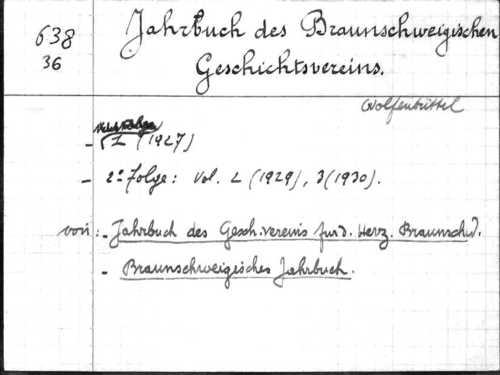 638
36
Jahrbuch des Braunschweigischen
Geschichtsvereins.
Wolfenbüttel
- 1 (1927)
- 2e Folge: Vol. 2 (1929), 3 (1930).
voir: - Jahrbuch des Gesch.vereins für d. Herz. Braunschw.
- Braunschweigisches Jahrbuch.